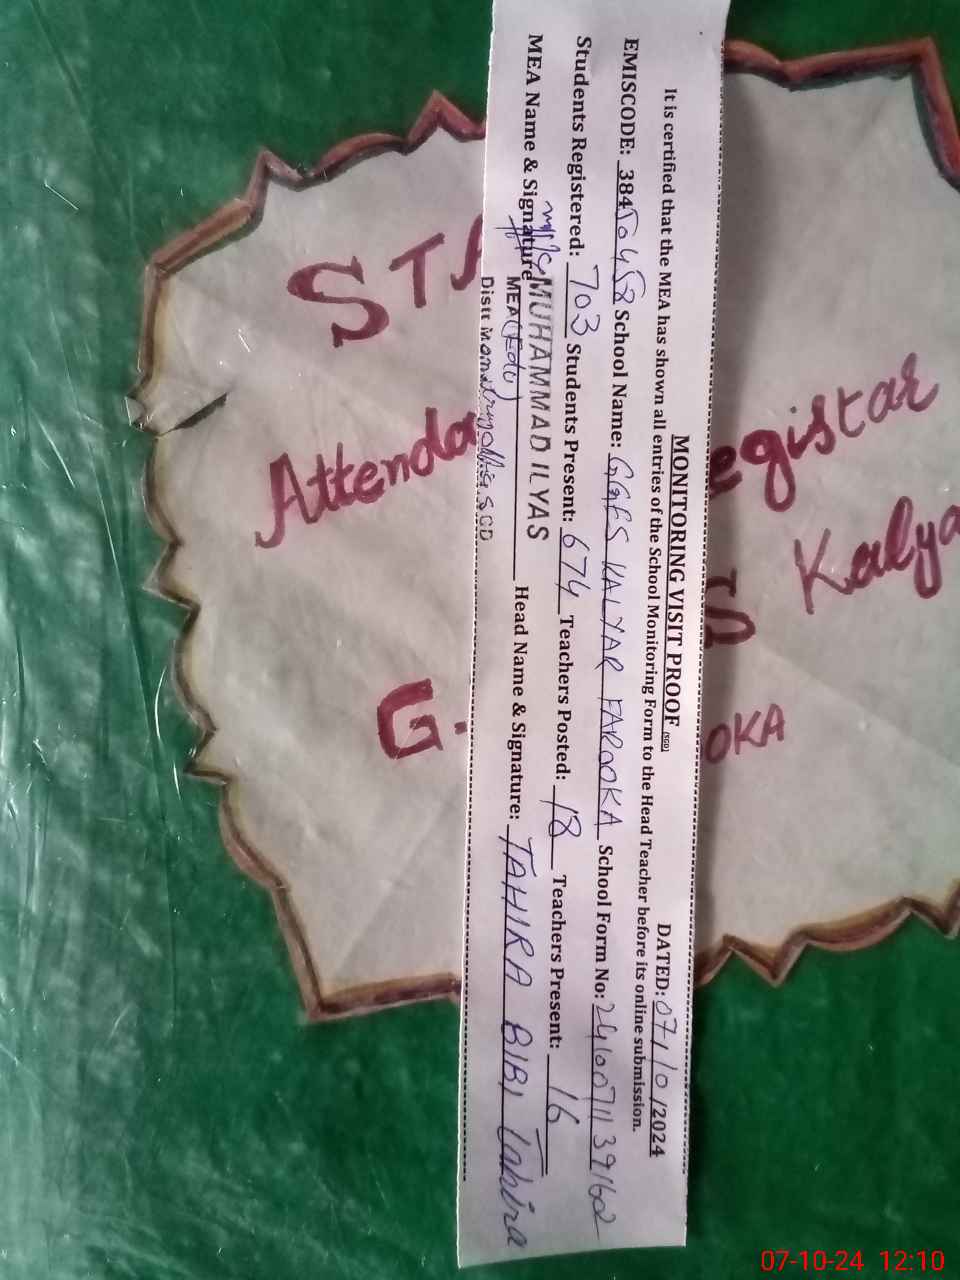 MONITORING VISIT PROOF (SGD)
DATED: 07/10/2024
It is certified that the MEA has shown all entries of the School Monitoring Form to the Head Teacher before its online submission.
EMISCODE: 384 School Name: GGES KALYAR FAROOKA School Form No:
Students Registered: 703 Students Present: 674 Teachers Posted: 18 Teachers Present: 16
MEA Name & Signature MUHAMMAD ILYAS Head Name & Signature: TAHIRA BIBI Tahira
MEA (Edu)
Distt Monitoring SGD
ST
Attenda egistar
Kalya
G. OKA
07-10-24 12:10